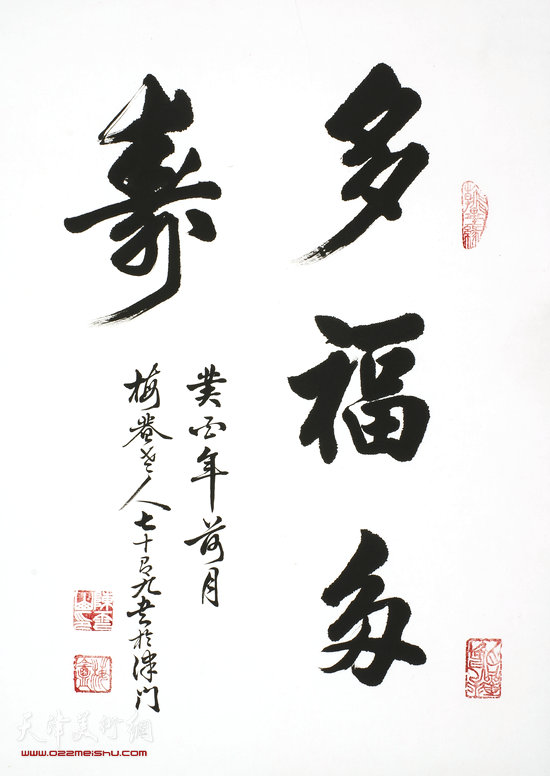 多福多
寿
癸酉年荷月
梅盦老人七十有九书於津门
天津美術網
www.022meishu.com